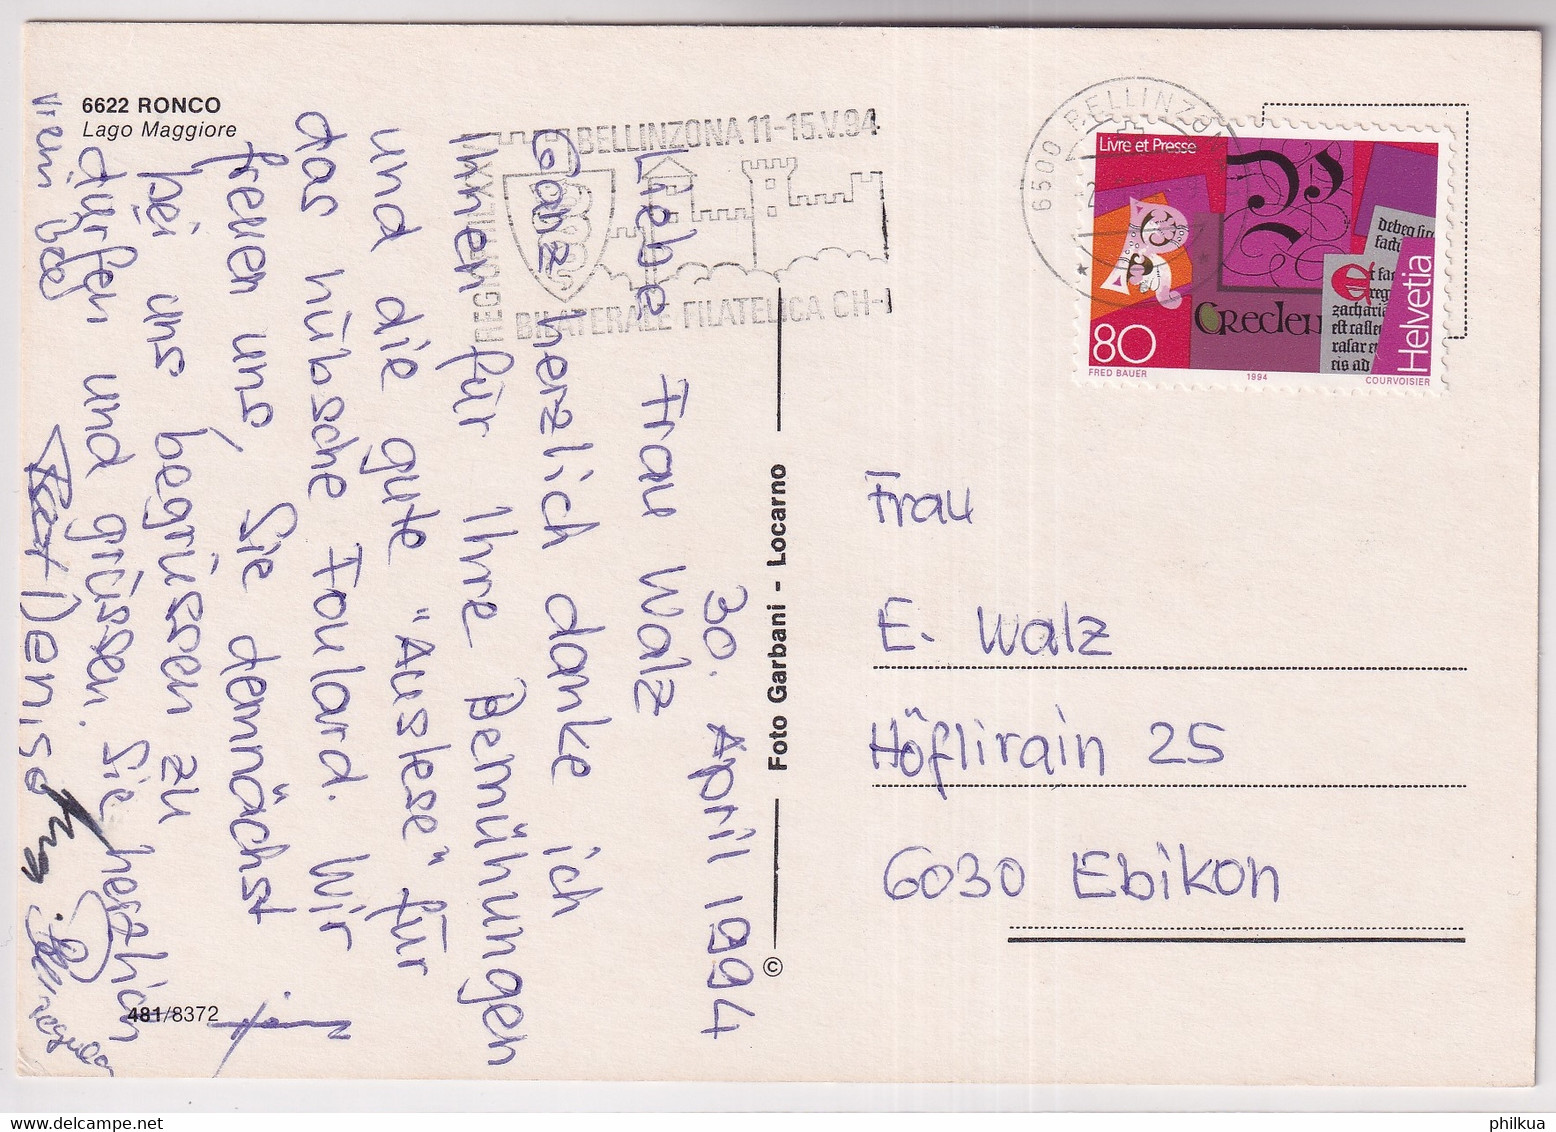 6622 RONCO
Lago Maggiore
30. April 1994
Liebe Frau Walz
Ganz herzlich danke ich
Ihnen für Ihre Bemühungen
und die gute "Auslese" für
das hübsche Foulard. Wir
freuen uns, Sie demnächst
bei uns begrüssen zu
dürfen und grüssen Sie herzlich
Denise
481/8372
Foto Garbani - Locarno
©
REGIONALE XX
BELLINZONA 11-15.V.94
BILATERALE FILATELICA CH-I
6500 BELLINZO
Livre et Presse
debeo
Credeu
Et fac
reg
zacharia
est caste
rasar et
eis ad
Helvetia
80
FRED BAUER 1994 COURVOISIER
Frau
E. Walz
Höflirain 25
6030 Ebikon
philkua